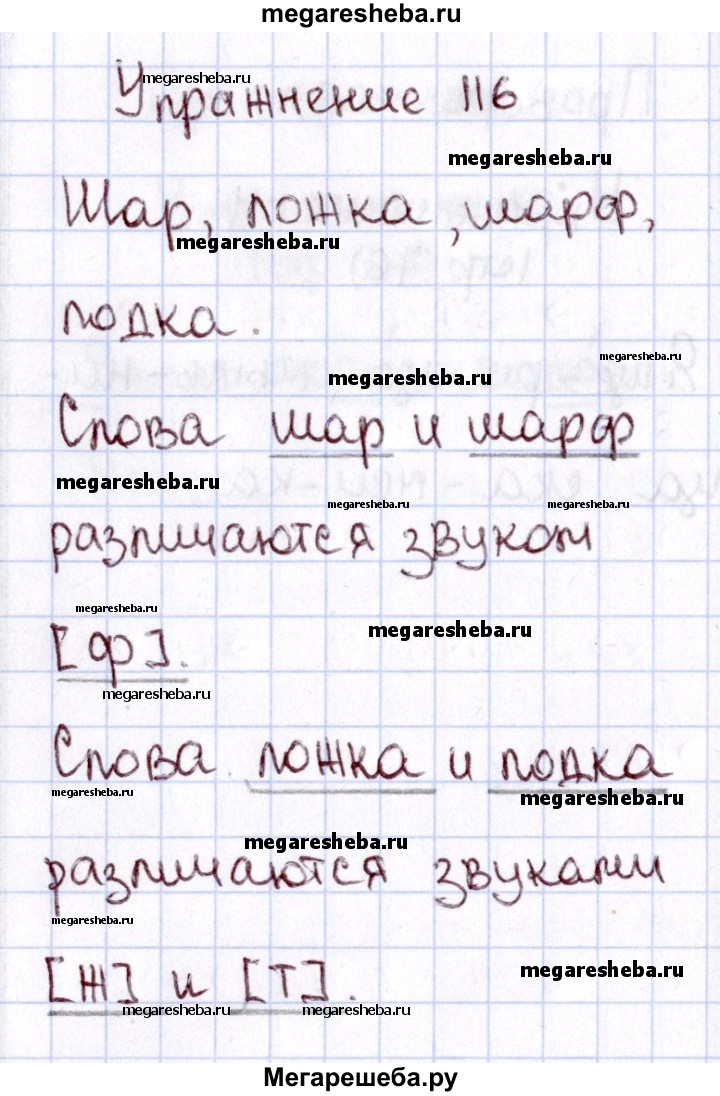 megaresheba.ru
megaresheba.ru
Упражнение 116
megaresheba.ru
Шар, ложка, шарф,
megaresheba.ru
лодка.
megaresheba.ru
megaresheba.ru
Слова шар и шарф
megaresheba.ru
megaresheba.ru
megaresheba.ru
различаются звуком
megaresheba.ru
megaresheba.ru
[ф].
megaresheba.ru
Слова ложка и лодка
megaresheba.ru
megaresheba.ru
megaresheba.ru
различаются звуками
megaresheba.ru
megaresheba.ru
[Ж] и [Т].
megaresheba.ru
megaresheba.ru
Мегарешеба.ру